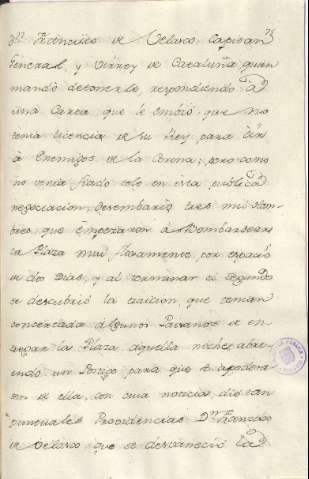 Dn. Francisco de Velasco, Capitan
General, y Virrey de Cataluña quien
mandó detenerle, respondiendo á
una Carta que le embió, que no
tenia licencia de su Rey para oir
á Enemigos de la Corona; pero como
no venia fiado solo en esta publica
negociacion, desembarcó tres mil hom-
bres que empezaron á Bombardear
la Plaza mui fieramente por espacio
de dos dias, y al terminar el segundo
se descubrió la traicion, que tenian
concertada algunos Paisanos de en-
tregar la Plaza aquella noche abri-
endo un Postigo para que se apodera-
sen de ella, con cuia noticia dió tan
puntuales Providencias Dn. Francisco
de Velasco que se desvaneció